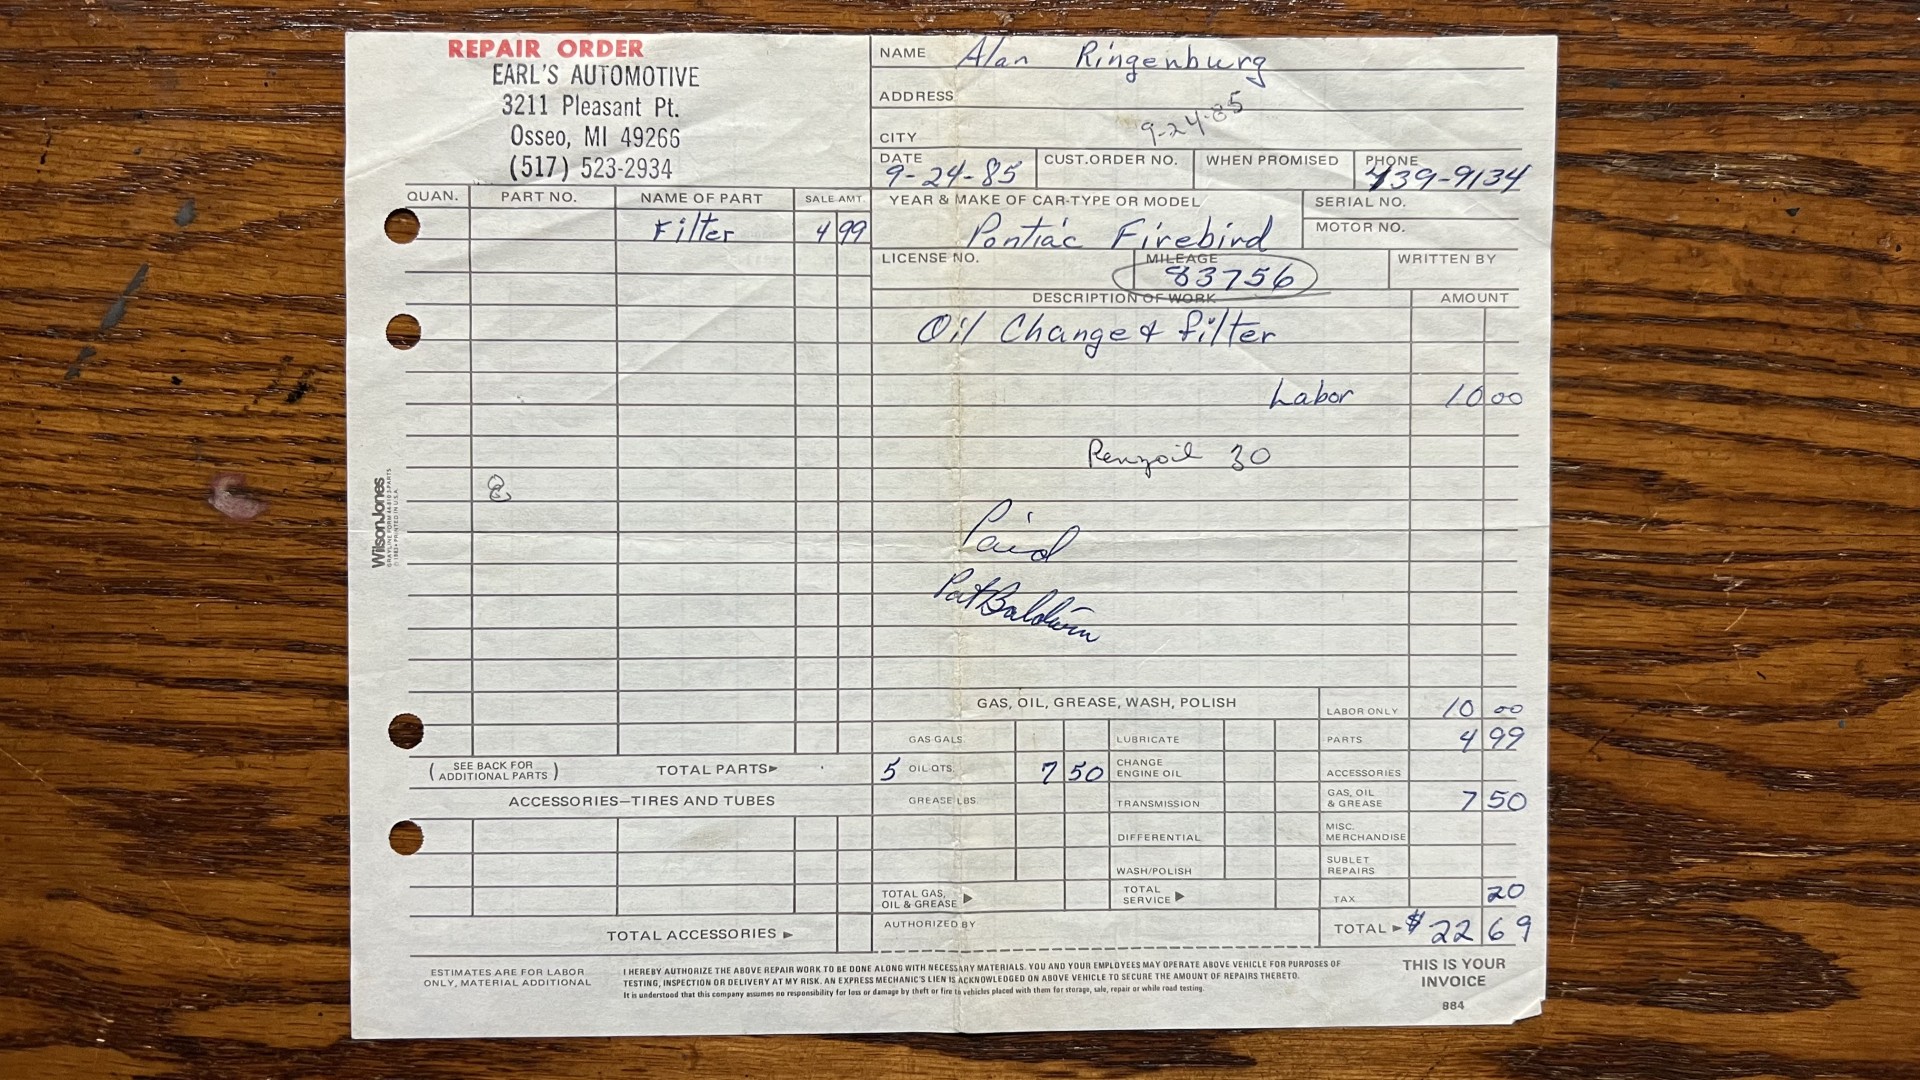 REPAIR ORDER
EARL'S AUTOMOTIVE
3211 Pleasant Pt.
Osseo, MI 49266
(517) 523-2934
NAME Alan Ringenburg
ADDRESS
9-24-85
CITY
DATE 9-24-85
CUST.ORDER NO.
WHEN PROMISED
PHONE 439-9134
QUAN. PART NO. NAME OF PART SALE AMT.
Filter 4 99
YEAR & MAKE OF CAR-TYPE OR MODEL
Pontiac Firebird
SERIAL NO.
MOTOR NO.
LICENSE NO.
MILEAGE 83756
WRITTEN BY
DESCRIPTION OF WORK AMOUNT
Oil Change & filter
Labor 10 00
Penzoil 30
Paid
Pat Baldwin
WilsonJones
GRAYLINE FORM 44-810 3 PARTS
©1982 • PRINTED IN U.S.A.
(SEE BACK FOR ADDITIONAL PARTS)
TOTAL PARTS►
ACCESSORIES—TIRES AND TUBES
TOTAL ACCESSORIES ►
GAS, OIL, GREASE, WASH, POLISH
GAS-GALS.
5 OIL QTS. 7 50
GREASE LBS.
TOTAL GAS, OIL & GREASE ►
LUBRICATE
CHANGE ENGINE OIL
TRANSMISSION
DIFFERENTIAL
WASH/POLISH
TOTAL SERVICE ►
AUTHORIZED BY
LABOR ONLY 10 00
PARTS 4 99
ACCESSORIES
GAS, OIL & GREASE 7 50
MISC. MERCHANDISE
SUBLET REPAIRS
TAX 20
TOTAL ► $22 69
ESTIMATES ARE FOR LABOR
ONLY, MATERIAL ADDITIONAL
I HEREBY AUTHORIZE THE ABOVE REPAIR WORK TO BE DONE ALONG WITH NECESSARY MATERIALS. YOU AND YOUR EMPLOYEES MAY OPERATE ABOVE VEHICLE FOR PURPOSES OF
TESTING, INSPECTION OR DELIVERY AT MY RISK. AN EXPRESS MECHANIC'S LIEN IS ACKNOWLEDGED ON ABOVE VEHICLE TO SECURE THE AMOUNT OF REPAIRS THERETO.
It is understood that this company assumes no responsibility for loss or damage by theft or fire to vehicles placed with them for storage, sale, repair or while road testing.
THIS IS YOUR
INVOICE
884